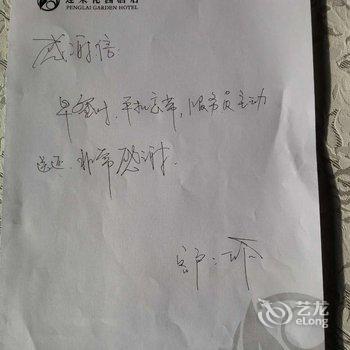 蓬莱花园酒店
PENGLAI GARDEN HOTEL
感谢信
早餐时,手机丢落,服务员主动
送还,非常感谢.
客户:
艺龙
eLong